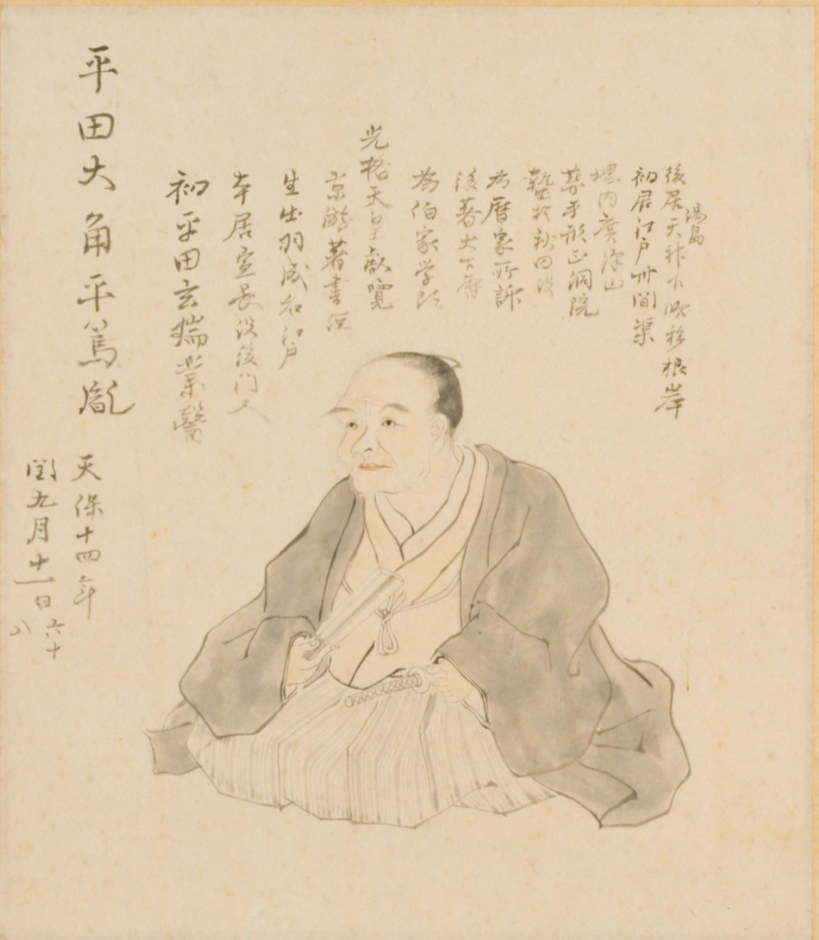 平田大角平篤胤
天保十四年
閏九月十一日
六十
八
初平田玄瑞業醫
本居宣長没後門人
生出羽成名江戸
京游著書經
光格天皇叡覧
為伯家学頭
後著大
為暦家所訴
蟄於秋田没
葬手形正洞院
境内廣澤山
初居江戸卅間渠
後居天神下後移根岸
湯島